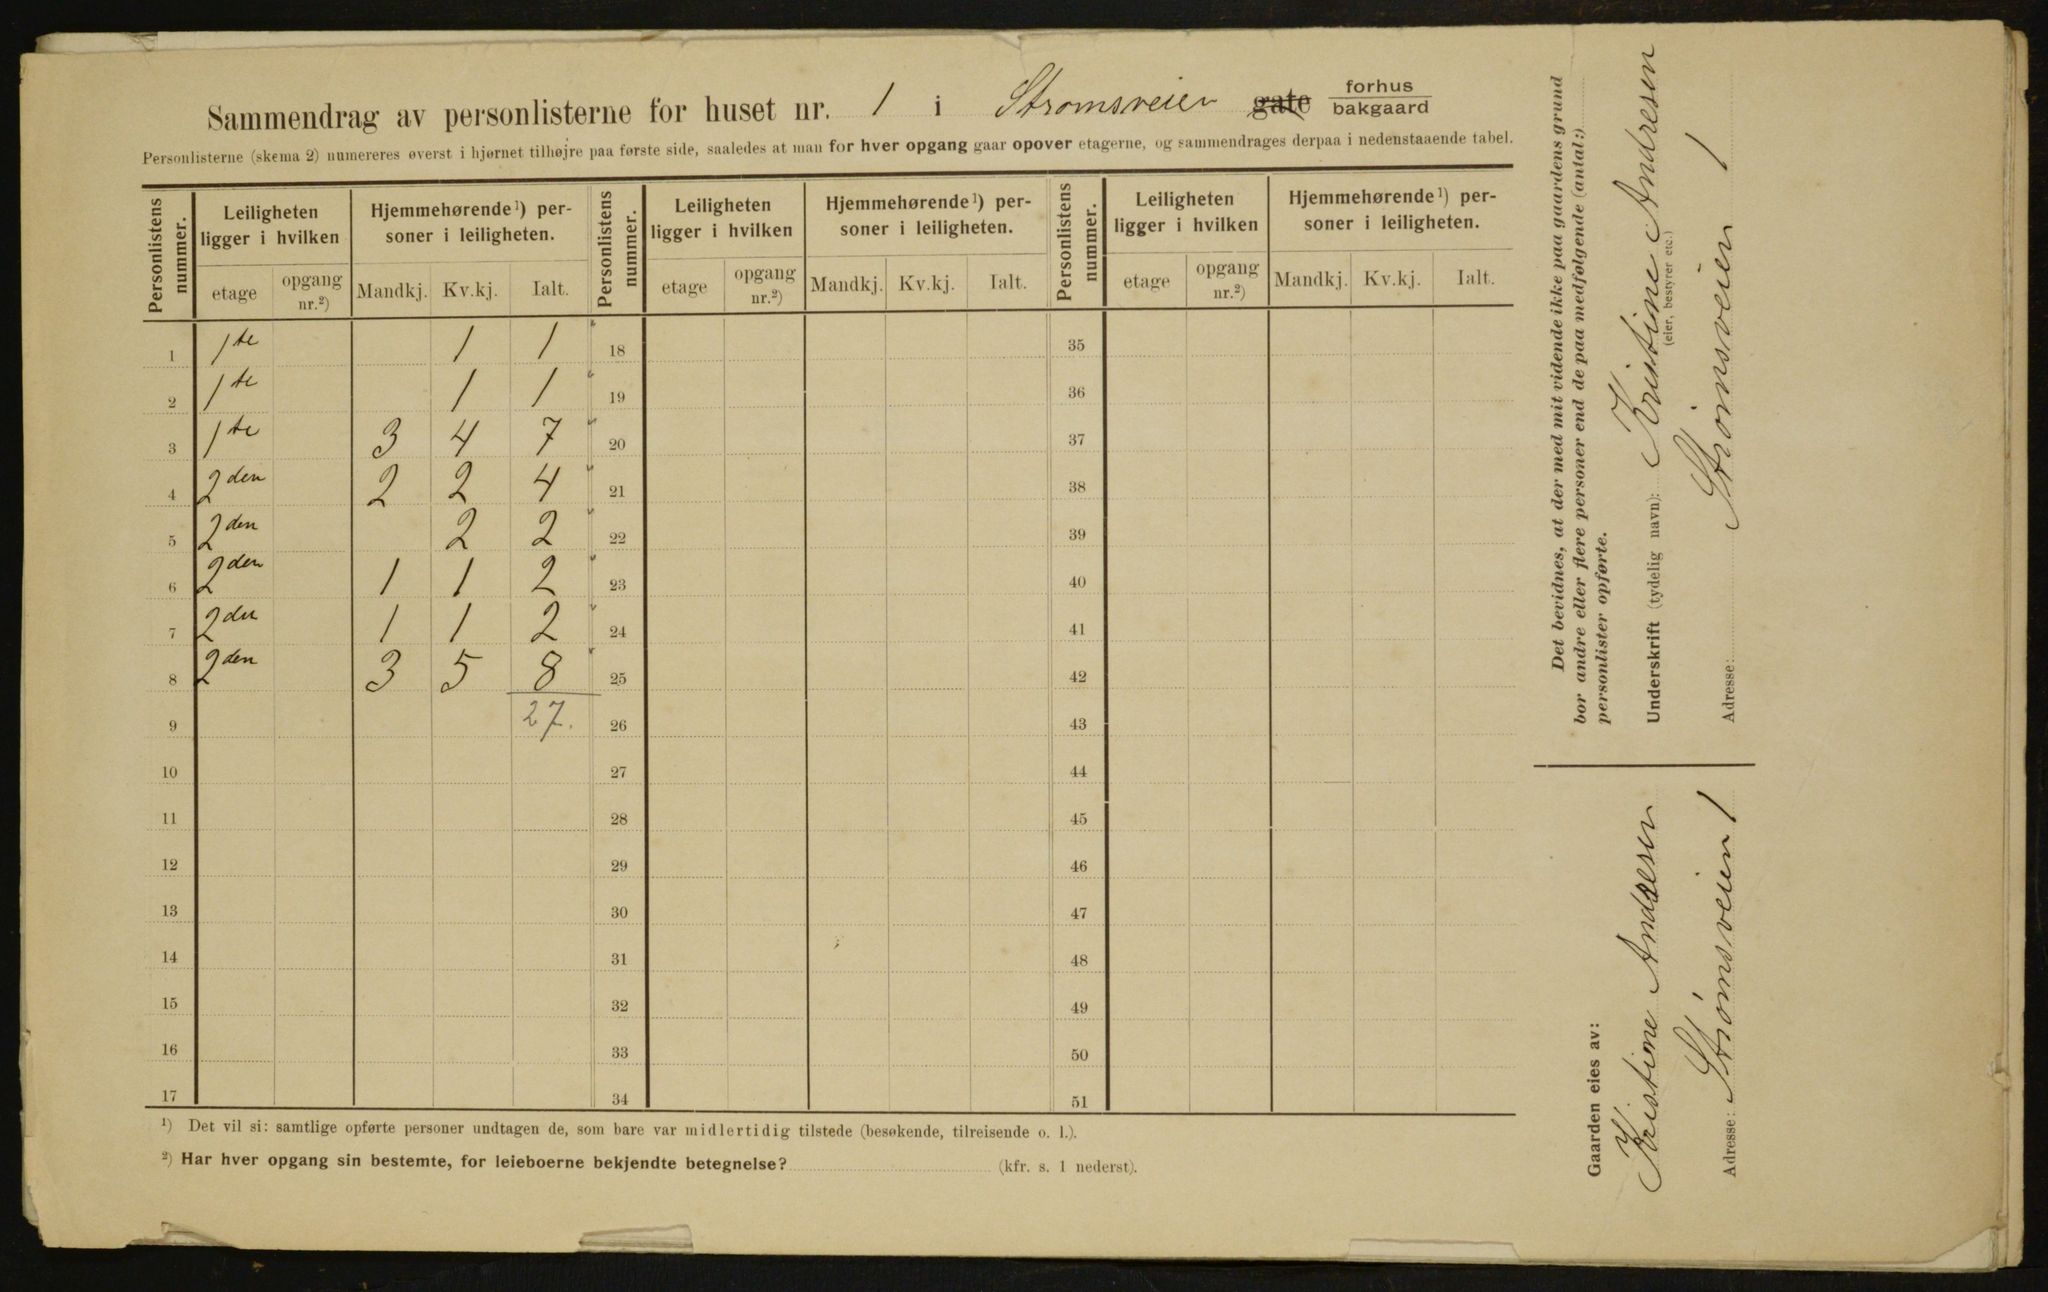 Sammendrag av personlisterne for huset nr. 1 i Stromsveien gate forhus bakgaard
Personlisterne (skema 2) numereres øverst i hjørnet tilhøjre paa første side, saaledes at man for hver opgang gaar opover etagerne, og sammendrages derpaa i nedenstaaende tabel.
Personlistens nummer. Leiligheten ligger i hvilken Hjemmehørende ¹) personer i leiligheten. Personlistens nummer. Leiligheten ligger i hvilken Hjemmehørende ¹) personer i leiligheten. Personlistens nummer. Leiligheten ligger i hvilken Hjemmehørende ¹) personer i leiligheten.
etage opgang nr.²) Mandkj. Kv.kj. Ialt. etage opgang nr.²) Mandkj. Kv.kj. Ialt. etage opgang nr.²) Mandkj. Kv.kj. Ialt.
1 1te 1 1 18 35
2 1te 1 1 19 36
3 1te 3 4 7 20 37
4 2den 2 2 4 21 38
5 2den 2 2 22 39
6 2den 1 1 2 23 40
7 2den 1 1 2 24 41
8 2den 3 5 8 25 42
9 27. 26 43
10 27 44
11 28 45
12 29 46
13 30 47
14 31 48
15 32 49
16 33 50
17 34 51
¹) Det vil si: samtlige opførte personer undtagen de, som bare var midlertidig tilstede (besøkende, tilreisende o. l.).
²) Har hver opgang sin bestemte, for leieboerne bekjendte betegnelse? (kfr. s. 1 nederst).
Det bevidnes, at der med mit vidende ikke paa gaardens grund
bor andre eller flere personer end de paa medfølgende (antal:)
personlister opførte.
Underskrift (tydelig navn): Kristine Andresen
(eier, bestyrer etc.)
Adresse: Strömsveien 1
Gaarden eies av:
Kristine Andresen
Adresse: Strömsveien 1